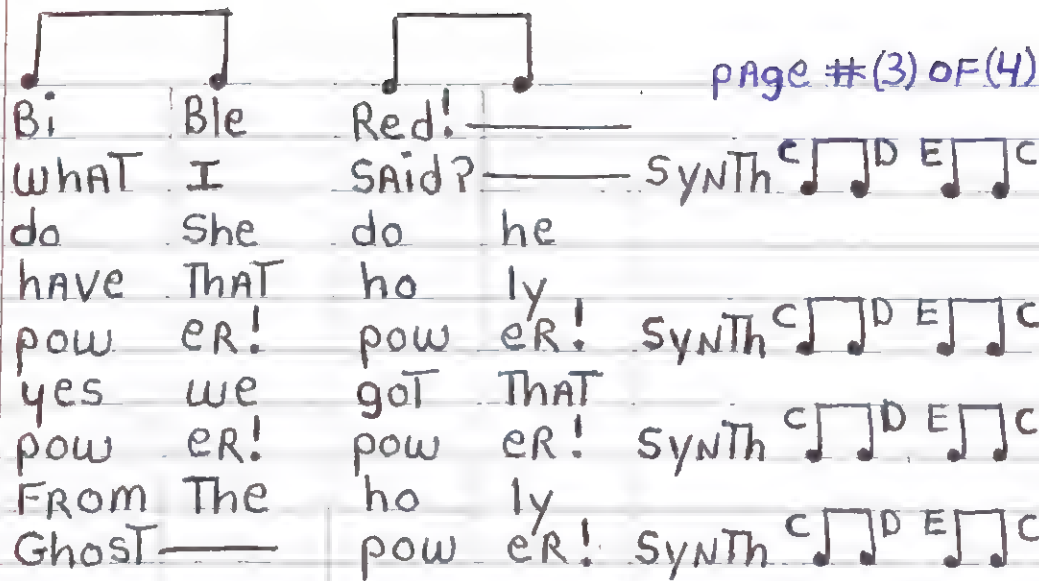 pAge #(3) OF (4)
Bi Ble Red!
WhAT I SAid? SYNTh C D E C
do She do he
hAVe ThAT ho ly
pow eR! pow eR! SYNTh C D E C
yes we goT ThAT
pow eR! pow eR! SYNTh C D E C
FROM The ho ly
GhosT pow eR! SYNTh C D E C